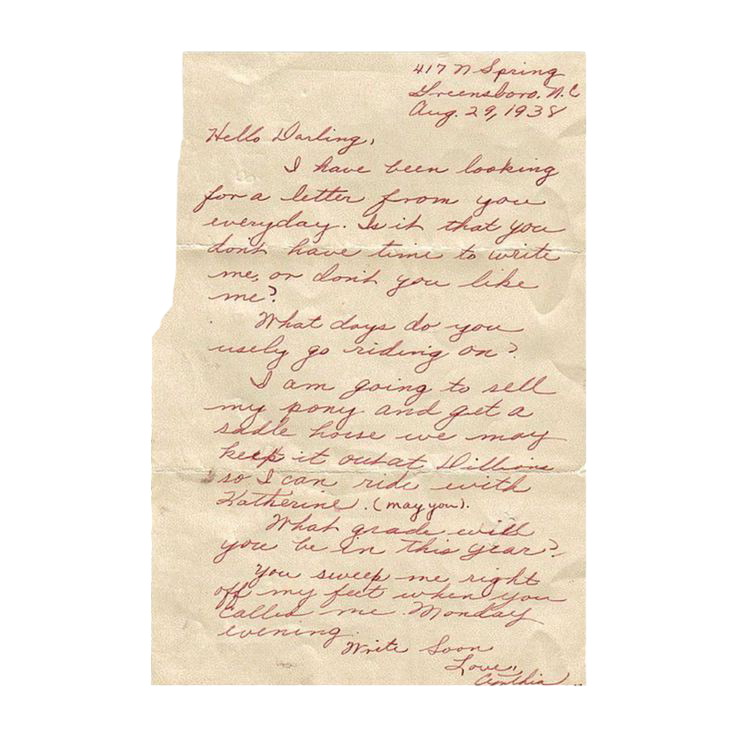 417 N Spring
Greensboro, N.C
Aug. 29, 1938
Hello Darling,
I have been looking
for a letter from you
everyday. Is it that you
don't have time to write
me, or don't you like
me?
What days do you
usely go riding on?
I am going to sell
my pony and get a
sadle horse we may
keep it out at
so I can ride with
Katherine. (may you).
What grade will
you be in this year?
You sweep me right
off my feet when you
called me Monday
evening.
Write Soon
Love,,
Cynthia